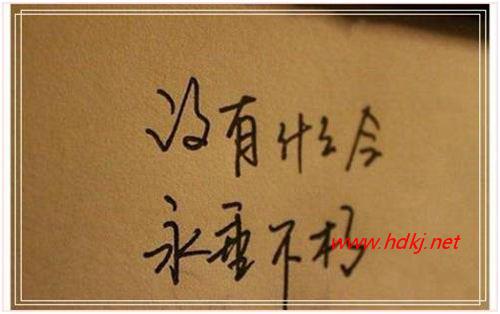 没有什么会
永垂不朽
www.hdkj.net